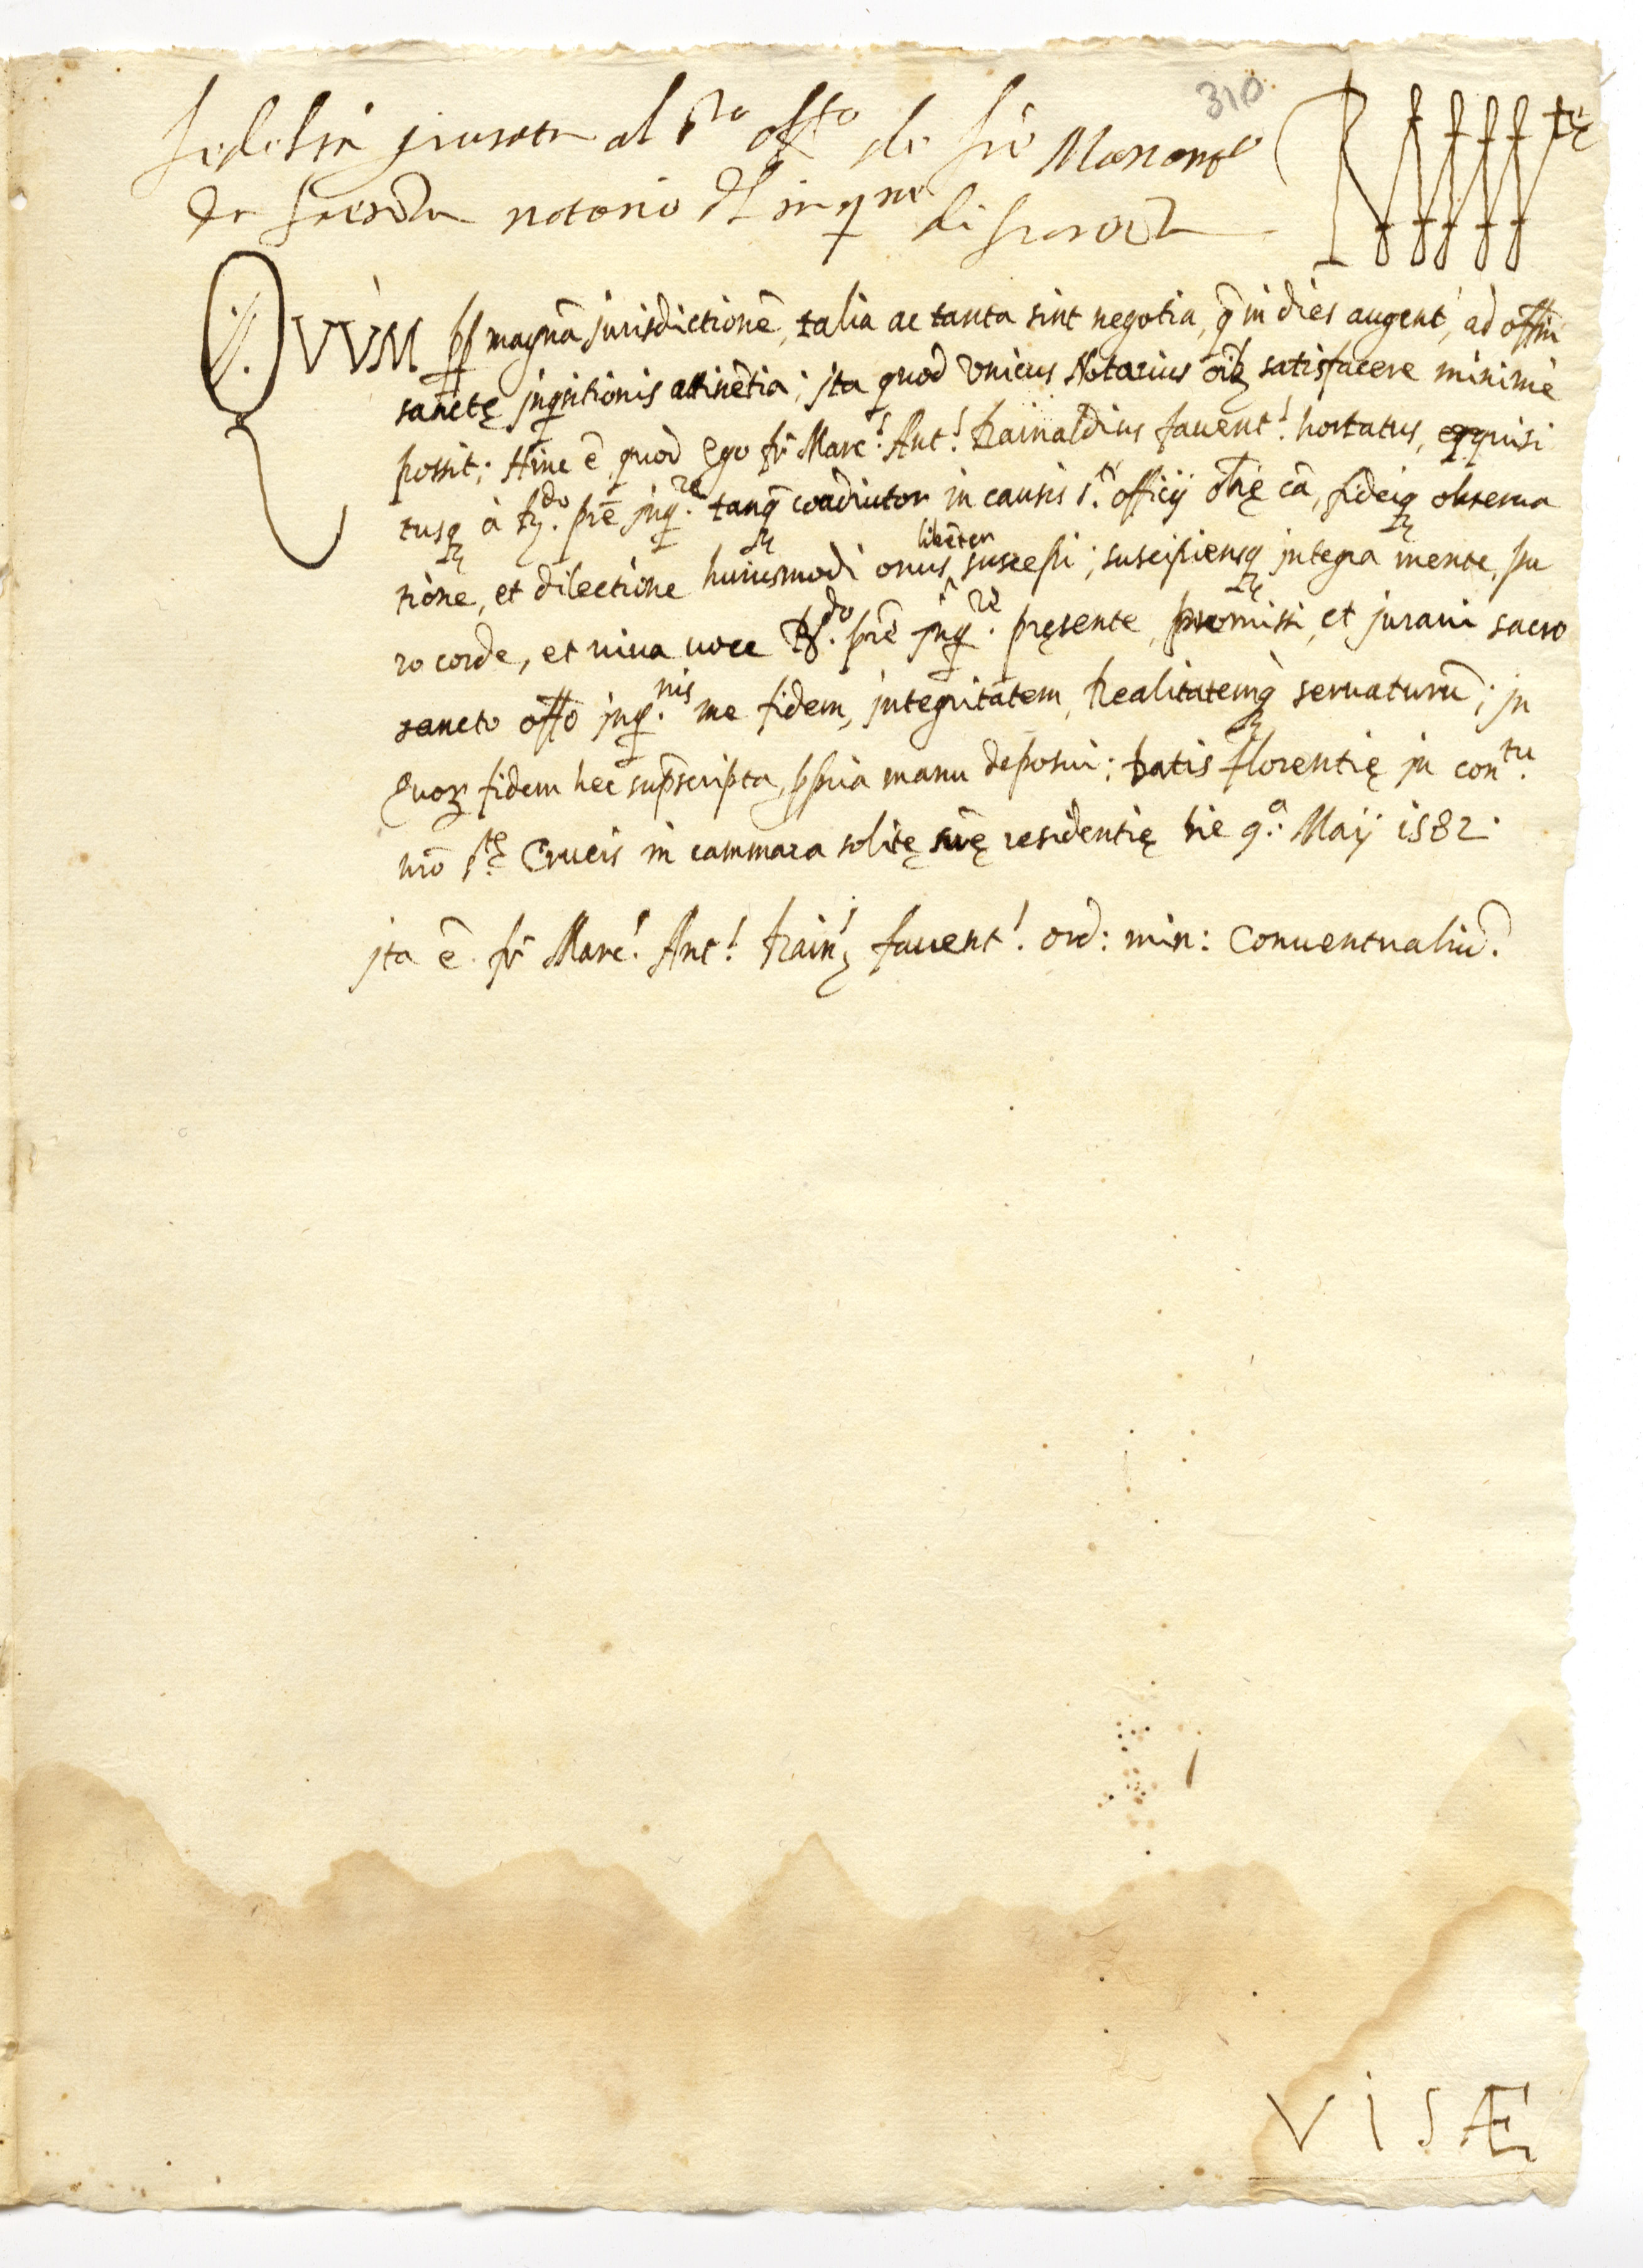 310
fedeltà giurata al s.to offo de frè Marcant.o
da faenza notario dl inq.ne di firenze
QVVM ꝓp magnā jurisdictionē, talia ac tanta sint negotia, q̄ in dies augent', ad offm
sanctę jnqsitionis attinētia; jta quod vnicus Notarius oībꝫ satisfacere minimè
possit; Hinc ē quod Ego fr̄ Marc! Ant! Rainaldius fauent! hortatus, reqquisi
tusq à R.do prē jnq.re tanq̄ coadiutor in causis s.ti officij oī cā, fideiq obserua
tione, et dilectione huiusmodi onus libēter suscepi; suscipiensq jntegra mente, pu
ro corde, et uiua uoce R.do prē jnq.re pręsente, promissi, et juraui sacro
sancto offo jnq.nis me fidem, jntegritātem, Realitatemq seruaturū; jn
Quoꝝ fidem hec suprscripta, ꝓpria manu deposui: Datis florentię jn con.tu
nro s.tę Crucis in cammara solitę suę residentię die 9.a Maij 1582.
jta ē fr̄ Marc! Ant! Rain! fauent! ord: min: Conuentualiū.
VISÆ